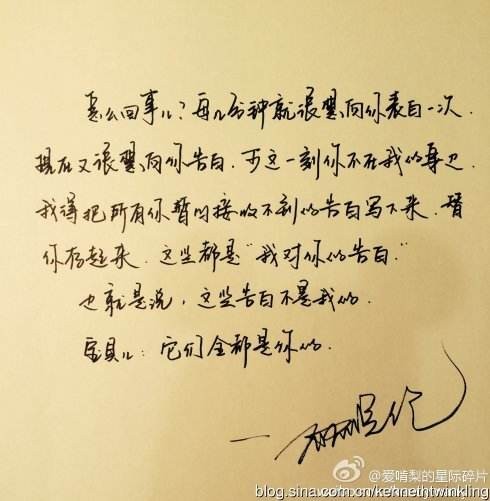 怎么回事儿?每几分钟就很想向你表白一次.
现在又很想向你告白.可这一刻你不在我的身边.
我得把所有你暂时接收不到的告白写下来.替
你存起来.这些都是“我对你的告白.”
也就是说,这些告白不是我的.
宝贝儿:它们全都是你的.
@爱啃梨的星际碎片
blog.sina.com.cn/kennethtwinkling